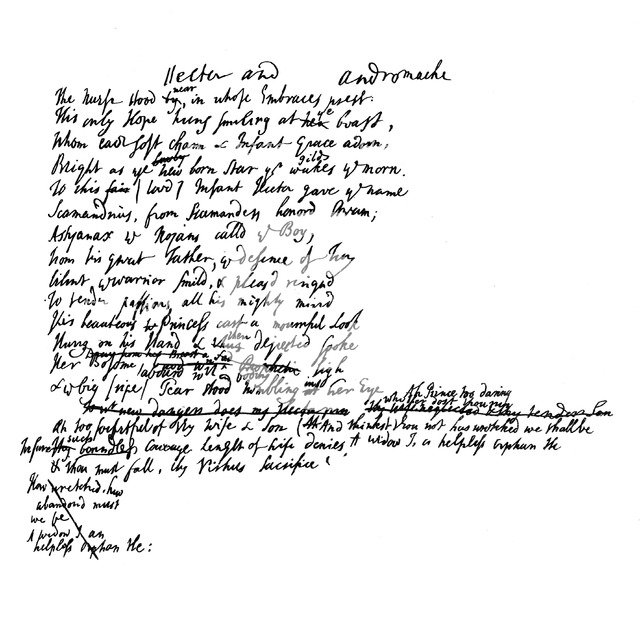 Hector and Andromache
The Nurse stood near, in whose Embraces prest
His only Hope hung smiling at her breast,
Whom each soft charm & Infant Grace adorn,
Bright as ye new born Star yt gilds ye morn.
To this fair [lov'd] Infant Hector gave ye name
Scamandrius, from Scamanders honord Stream;
Astyanax ye Trojans calld ye Boy,
From his great Father, ye defence of Troy
Silent ye warrior smild, & pleasd resignd
To tender passions all his mighty mind
His beauteous Princess cast a mournful Look
Hung on his Hand & then dejected spoke
Her Bosome labourd wth a boding sigh
& ye big [ripe] Tear stood trembling in her Eye
Ah too daring Prince
ah too forgetful of thy wife & Son
And thinkst thou not how wretched we shall be
For sure such courage length of Life denies, A widow I, a helpless orphan He
& thou must fall, thy Virtues Sacrifice
How wretched, how
abandond must
we be
A widow I an
helpless orphan He: